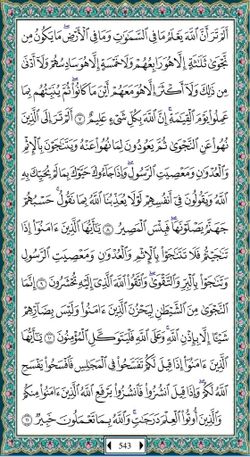 أَلَمْ تَرَ أَنَّ ٱللَّهَ يَعْلَمُ مَا فِى ٱلسَّمَٰوَٰتِ وَمَا فِى ٱلْأَرْضِ ۖ مَا يَكُونُ مِن
نَّجْوَىٰ ثَلَٰثَةٍ إِلَّا هُوَ رَابِعُهُمْ وَلَا خَمْسَةٍ إِلَّا هُوَ سَادِسُهُمْ وَلَآ أَدْنَىٰ
مِن ذَٰلِكَ وَلَآ أَكْثَرَ إِلَّا هُوَ مَعَهُمْ أَيْنَ مَا كَانُوا۟ ۖ ثُمَّ يُنَبِّئُهُم بِمَا
عَمِلُوا۟ يَوْمَ ٱلْقِيَٰمَةِ ۚ إِنَّ ٱللَّهَ بِكُلِّ شَىْءٍ عَلِيمٌ ٧ أَلَمْ تَرَ إِلَى ٱلَّذِينَ
نُهُوا۟ عَنِ ٱلنَّجْوَىٰ ثُمَّ يَعُودُونَ لِمَا نُهُوا۟ عَنْهُ وَيَتَنَٰجَوْنَ بِٱلْإِثْمِ
وَٱلْعُدْوَٰنِ وَمَعْصِيَتِ ٱلرَّسُولِ وَإِذَا جَآءُوكَ حَيَّوْكَ بِمَا لَمْ يُحَيِّكَ بِهِ
ٱللَّهُ وَيَقُولُونَ فِىٓ أَنفُسِهِمْ لَوْلَا يُعَذِّبُنَا ٱللَّهُ بِمَا نَقُولُ ۚ حَسْبُهُمْ
جَهَنَّمُ يَصْلَوْنَهَا ۖ فَبِئْسَ ٱلْمَصِيرُ ٨ يَٰٓأَيُّهَا ٱلَّذِينَ ءَامَنُوٓا۟ إِذَا
تَنَٰجَيْتُمْ فَلَا تَتَنَٰجَوْا۟ بِٱلْإِثْمِ وَٱلْعُدْوَٰنِ وَمَعْصِيَتِ ٱلرَّسُولِ
وَتَنَٰجَوْا۟ بِٱلْبِرِّ وَٱلتَّقْوَىٰ ۖ وَٱتَّقُوا۟ ٱللَّهَ ٱلَّذِىٓ إِلَيْهِ تُحْشَرُونَ ٩ إِنَّمَا
ٱلنَّجْوَىٰ مِنَ ٱلشَّيْطَٰنِ لِيَحْزُنَ ٱلَّذِينَ ءَامَنُوا۟ وَلَيْسَ بِضَآرِّهِمْ
شَيْـًٔا إِلَّا بِإِذْنِ ٱللَّهِ ۚ وَعَلَى ٱللَّهِ فَلْيَتَوَكَّلِ ٱلْمُؤْمِنُونَ ١٠ يَٰٓأَيُّهَا
ٱلَّذِينَ ءَامَنُوٓا۟ إِذَا قِيلَ لَكُمْ تَفَسَّحُوا۟ فِى ٱلْمَجَٰلِسِ فَٱفْسَحُوا۟ يَفْسَحِ
ٱللَّهُ لَكُمْ ۖ وَإِذَا قِيلَ ٱنشُزُوا۟ فَٱنشُزُوا۟ يَرْفَعِ ٱللَّهُ ٱلَّذِينَ ءَامَنُوا۟ مِنكُمْ
وَٱلَّذِينَ أُوتُوا۟ ٱلْعِلْمَ دَرَجَٰتٍ ۚ وَٱللَّهُ بِمَا تَعْمَلُونَ خَبِيرٌ ١١
543